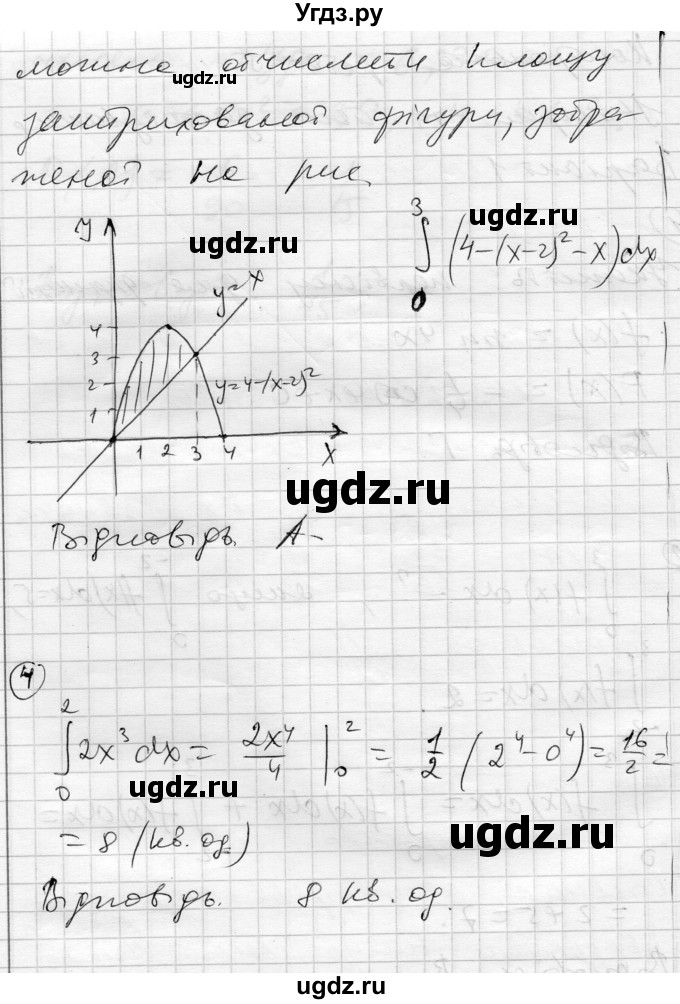 Угдз.ру
можна обчислити площу
заштрихованої фігури, зобра-
женої на рис.
ugdz.ru
∫₀³ (4-(x-2)²-x)dx
ugdz.ru ugdz.ru
y
y=x
4
3
2
1
y=4-(x-2)²
1 2 3 4
x
ugdz.ru
Відповідь. А-
4
∫₀² 2x³dx = 2x⁴/4 |₀² = 1/2 (2⁴-0⁴) = 16/2 =
ugdz.ru
= 8 (кв. од)
ugdz.ru
Відповідь. 8 кв. од.
ugdz.ru